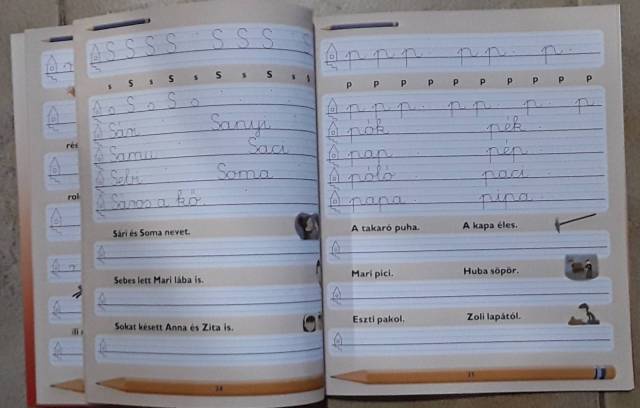 S S S S S S S S
s S s S s S s S s S
s S s S s
Sári Sanyi
Samu Saci
Soma
Sáros a kő.
Sári és Soma nevet.
Sebes lett Mari lába is.
Sokat késett Anna és Zita is.
24
p p p p p p
p p p p p p p p p p
p p p p p p p
pók pék
pap pép
póló paci
papa pipa
A takaró puha. A kapa éles.
Mari pici. Huba söpör.
Eszti pakol. Zoli lapától.